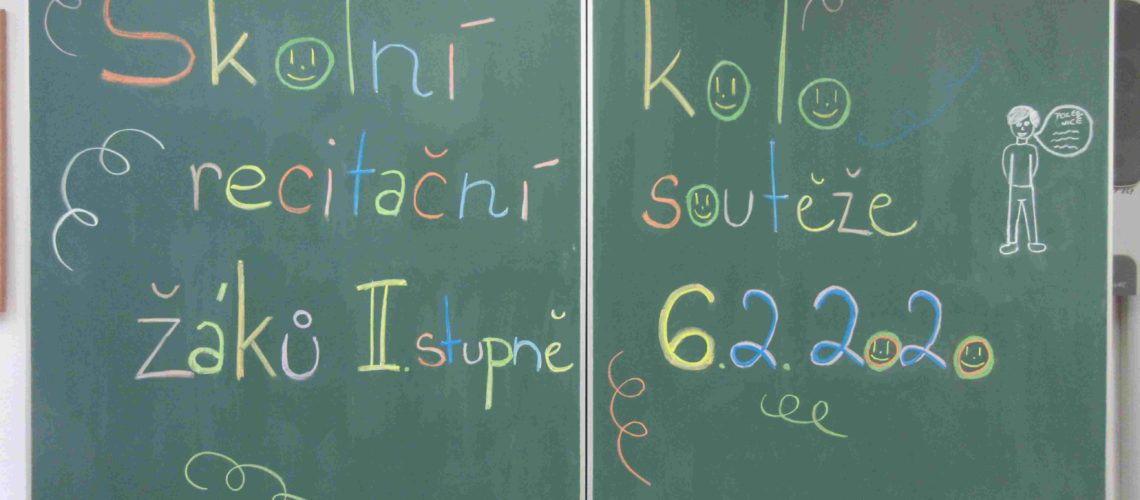 Školní kolo
recitační soutěže
žáků II. stupně 6.2.2020
POLED-
NICE